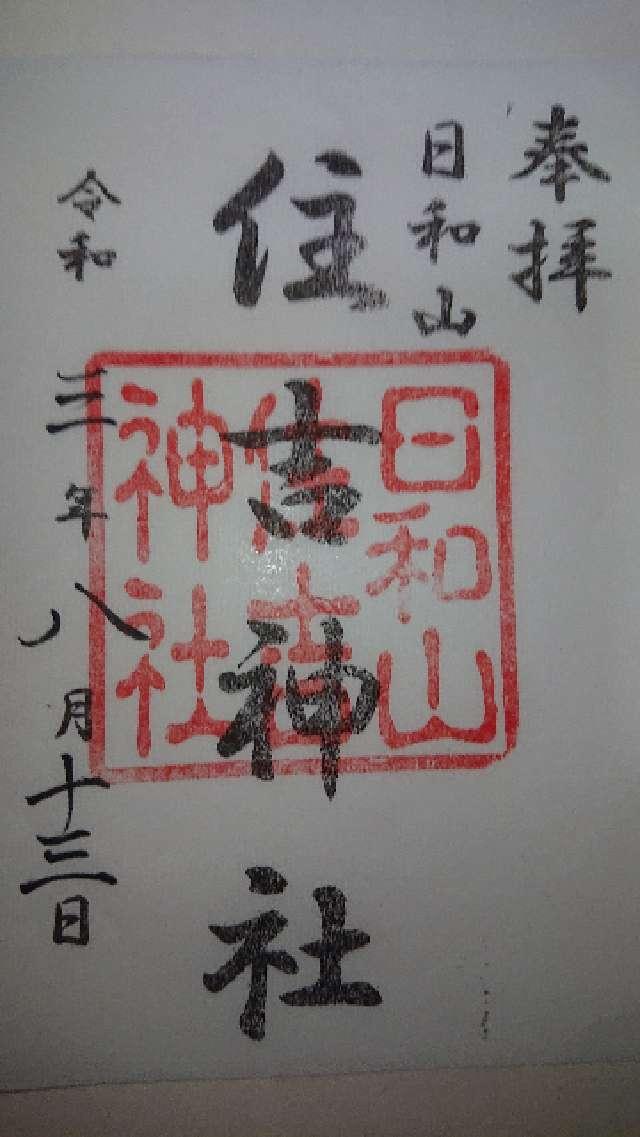 奉拝
日和山
住吉神社
令和三年八月十三日
日和山
住吉
神社